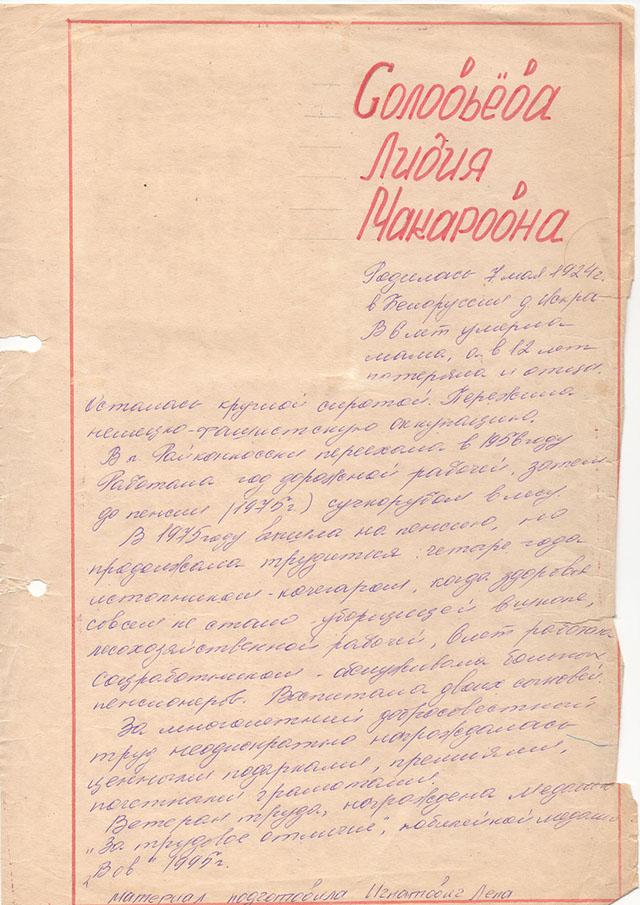 Соловьёва
Лидия
Макаровна
Родилась 7 мая 1924г.
в Белоруссии д. Искра
В 6 лет умерла
мама, а в 12 лет
потеряла и отца.
Осталась круглой сиротой. Пережила
немецко-фашистскую оккупацию.
В п. Райконкоски переехала в 1956 году
Работала год дорожной рабочей, затем
до пенсии (1975г) сучкорубом в лесу
В 1975 году вышла на пенсию, но
продолжала трудиться четыре года
истопником-кочегаром, когда здоровье
совсем не стало уборщицей в школе,
лесохозяйственной рабочей, 6 лет работала
соцработником - обслуживала больных
пенсионеров. Воспитала двоих сыновей.
За многолетний добросовестный
труд неоднократно награждалась
ценными подарками, премиями,
почетными грамотами.
Ветеран труда, награждена медалью
"За трудовое отличие", юбилейной медалью
"Вов" 1995г.
Материал подготовила Игнатович Лена